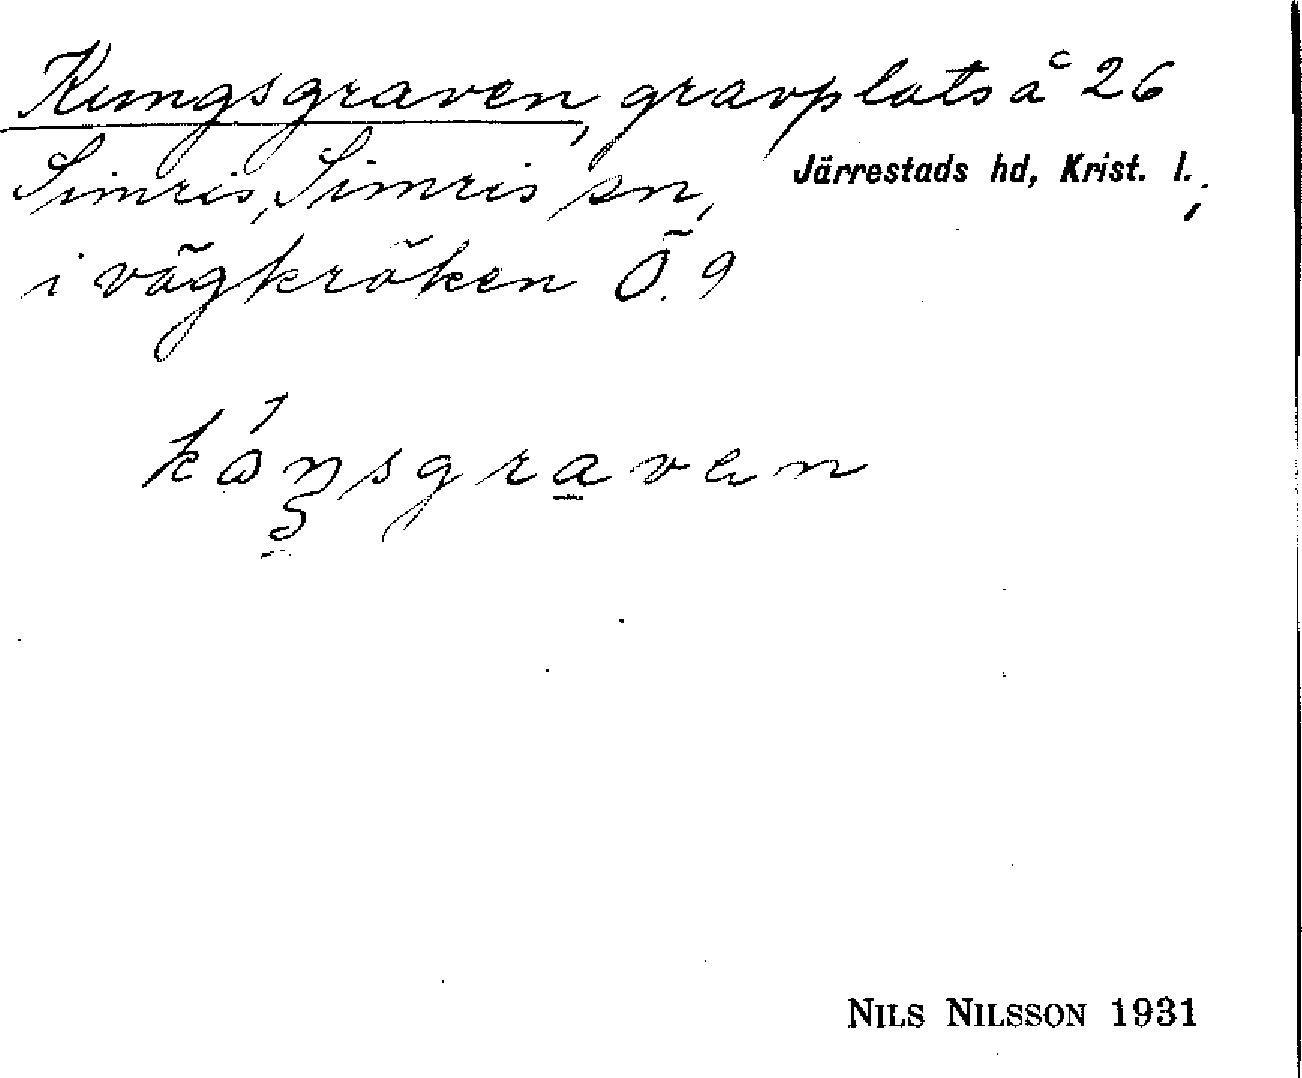 Kungsgraven, gravplats å 26
Simris, Simris sn, Järrestads hd, Krist. l.;
i vägkröken Ö. 9
kåŋsgraven
NILS NILSSON 1931